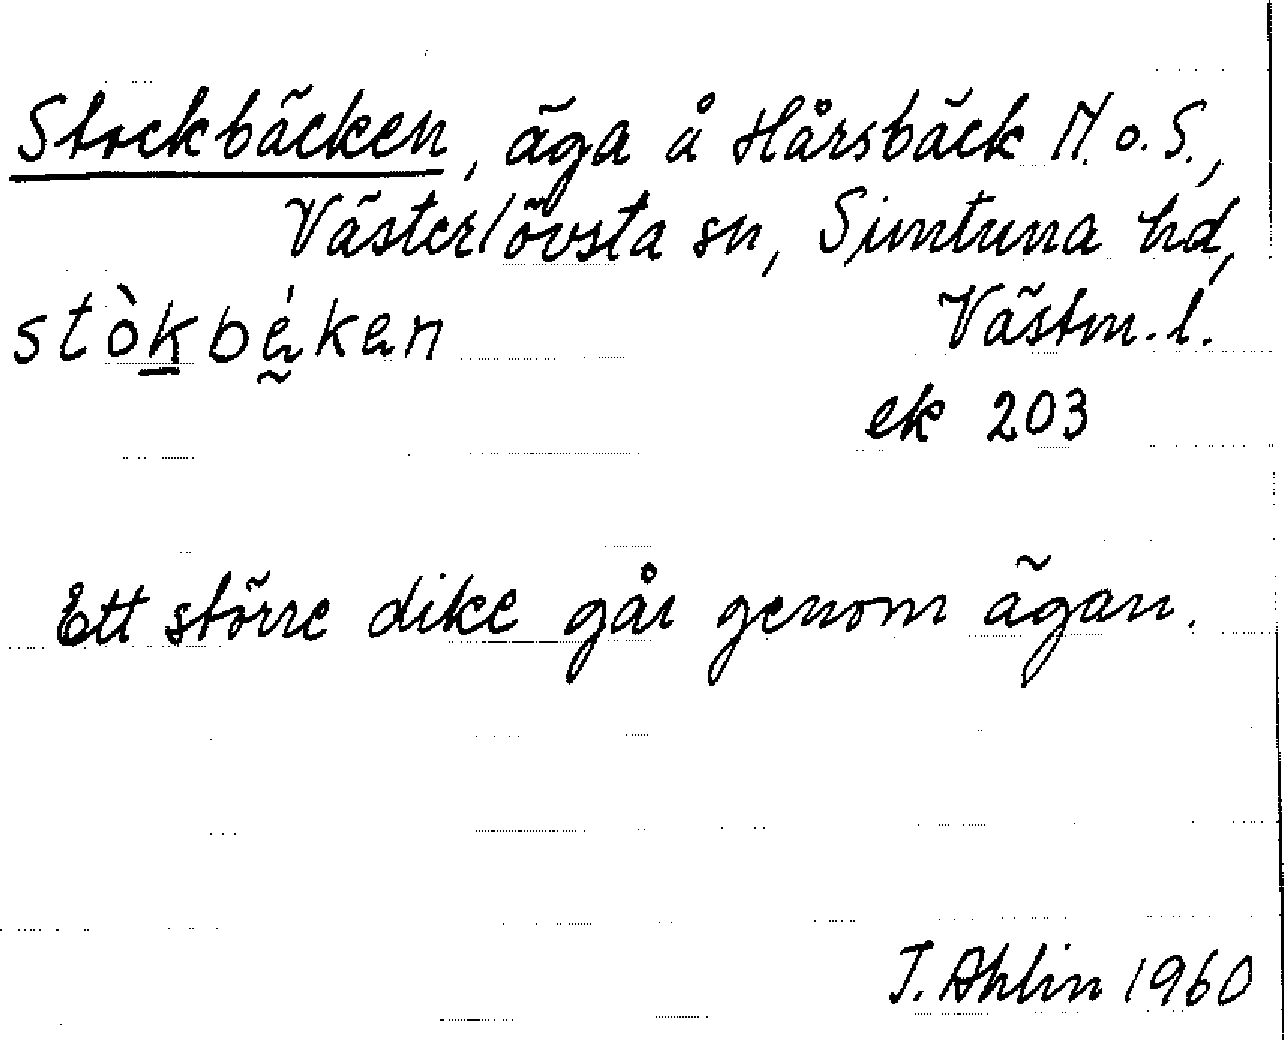 Stockbäcken, äga å Hårsbäck N. o. S.,
Västerlövsta sn, Simtuna hd,
stòkbékan Västm. l.
ek 203
Ett större dike går genom ägan.
T. Ahlin 1960